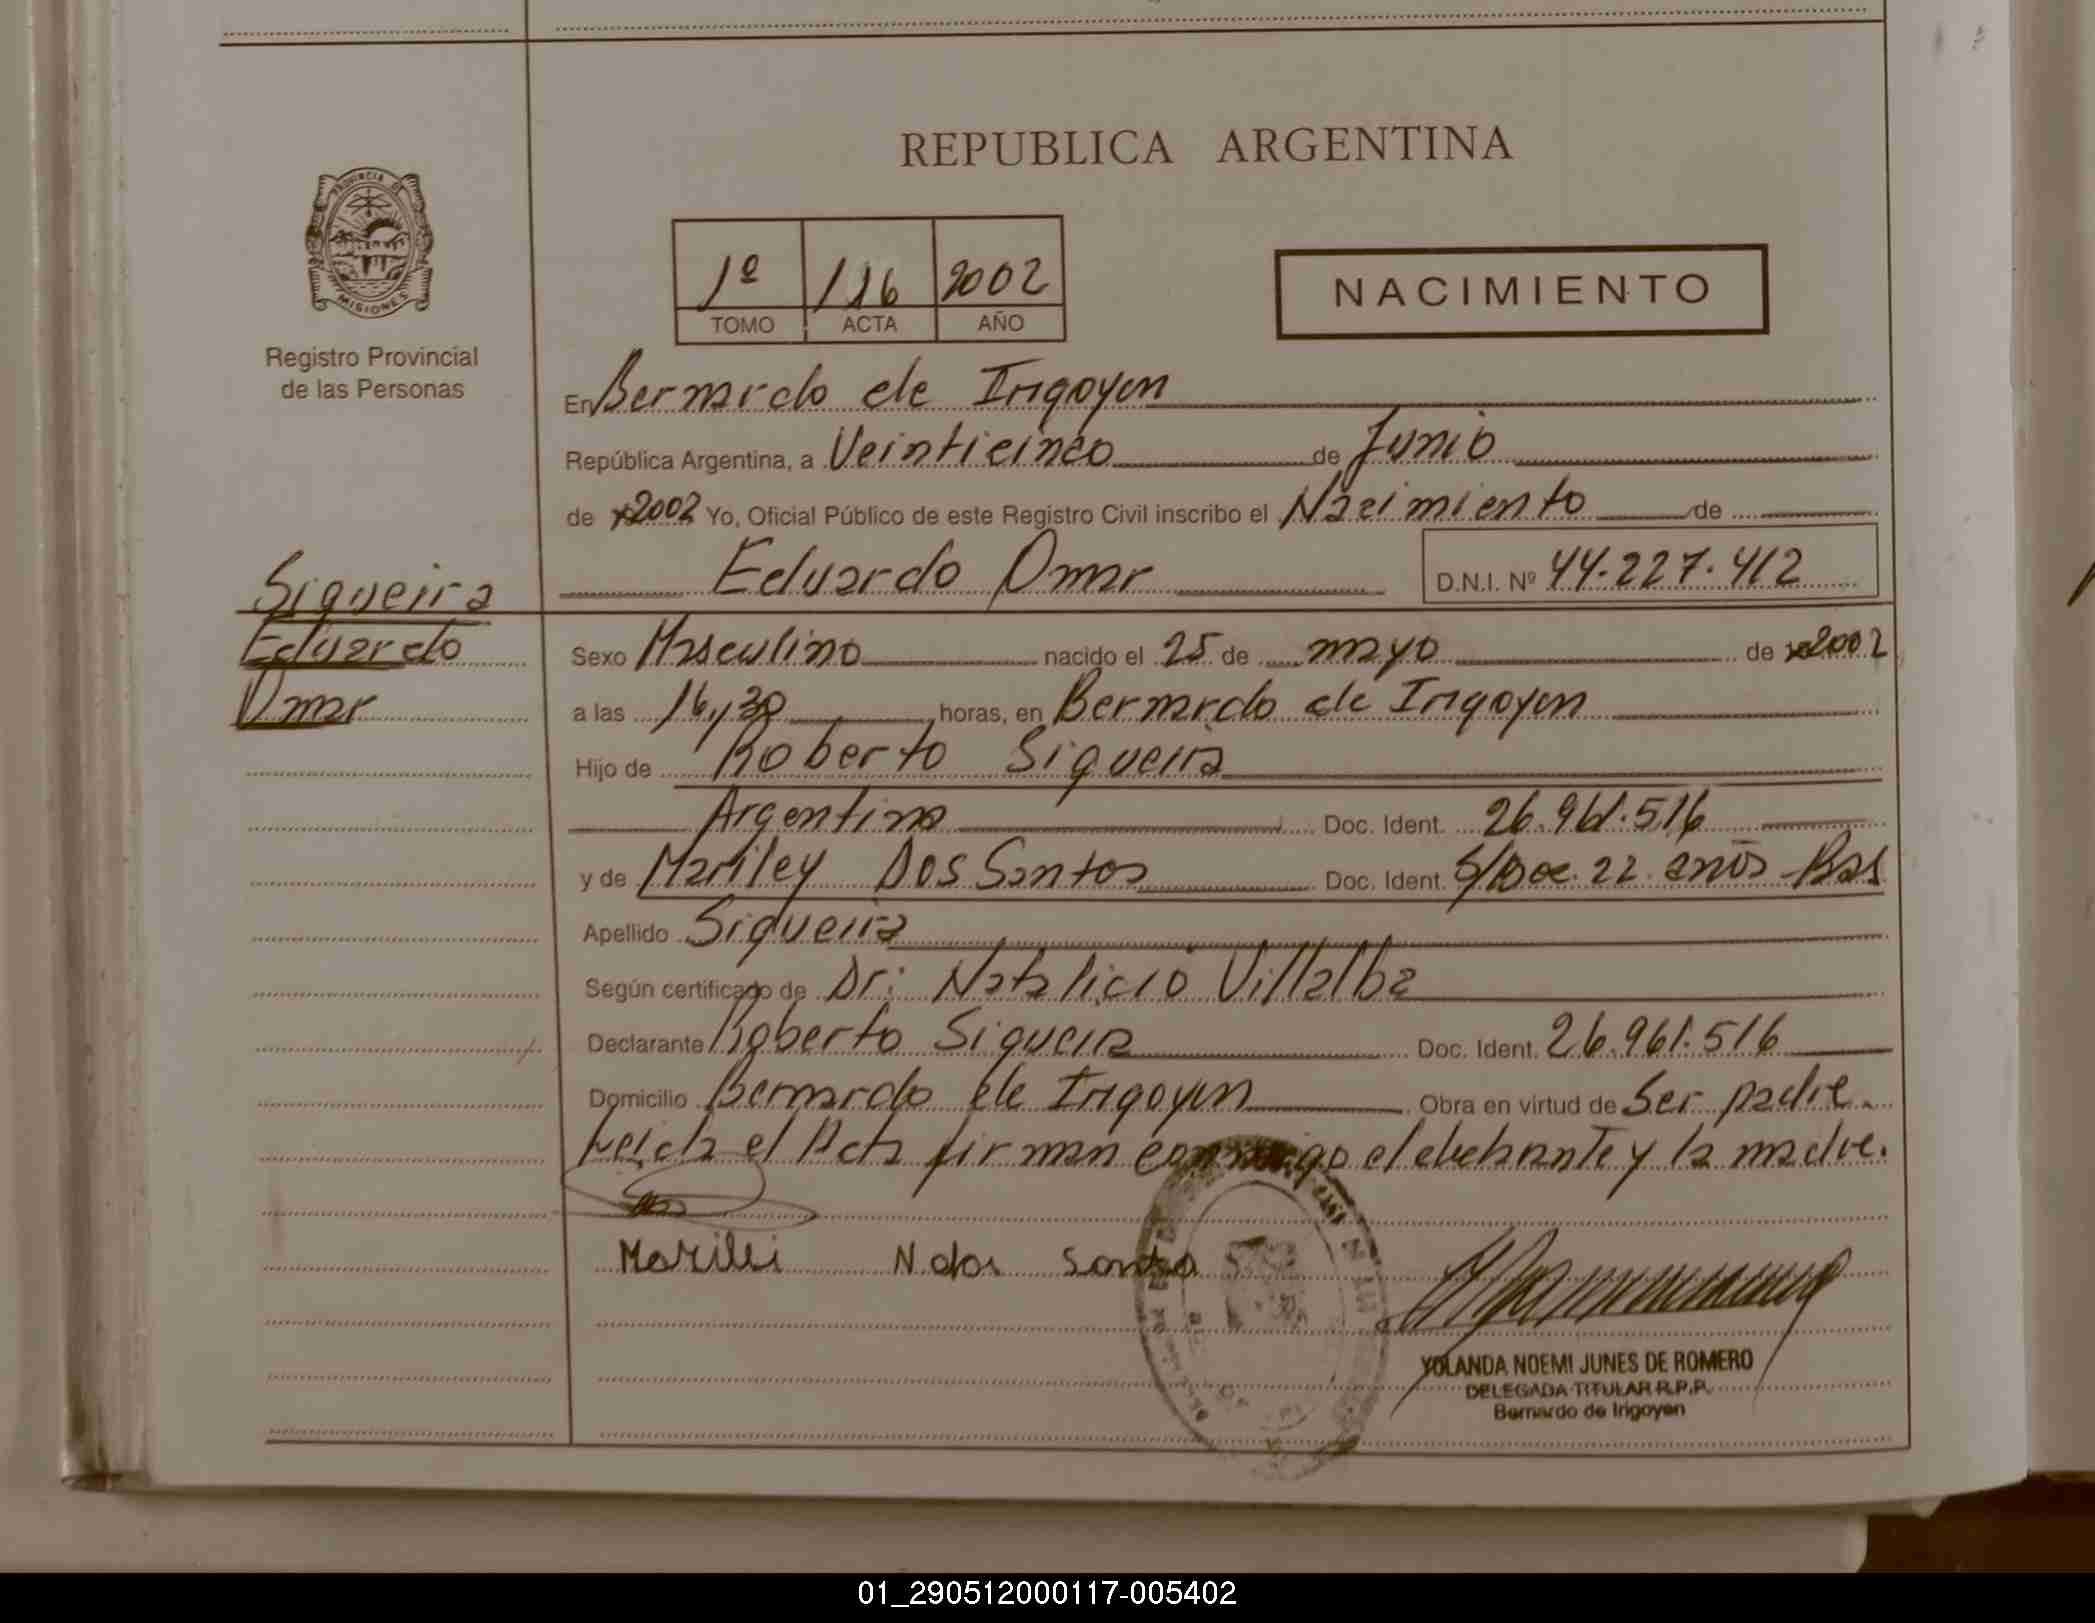 REPUBLICA ARGENTINA
PROVINCIA DE
MISIONES
Registro Provincial
de las Personas
1º 116 2002
TOMO ACTA AÑO
NACIMIENTO
En Bernardo de Irigoyen
República Argentina, a Veinticinco de Junio
de 2002 Yo, Oficial Público de este Registro Civil inscribo el Nacimiento de
Eduardo Omar D.N.I. Nº 44.227.412
Siqueira
Eduardo
Omar
Sexo Masculino nacido el 25 de mayo de 2002
a las 16,30 horas, en Bernardo de Irigoyen
Hijo de Roberto Siqueira
Argentino Doc. Ident. 26.961.516
y de Mariley Dos Santos Doc. Ident. S/Doc. 22 años - Bras
Apellido Siqueira
Según certificado de Dr: Natalicio Villalba
Declarante Roberto Siqueira Doc. Ident. 26.961.516
Domicilio Bernardo de Irigoyen Obra en virtud de Ser padre.
Leida el Acta firman conmigo el declarante y la madre.
Marilei N dos Santos
YOLANDA NOEMI JUNES DE ROMERO
DELEGADA TITULAR R.P.P.
Bernardo de Irigoyen
01_290512000117-005402